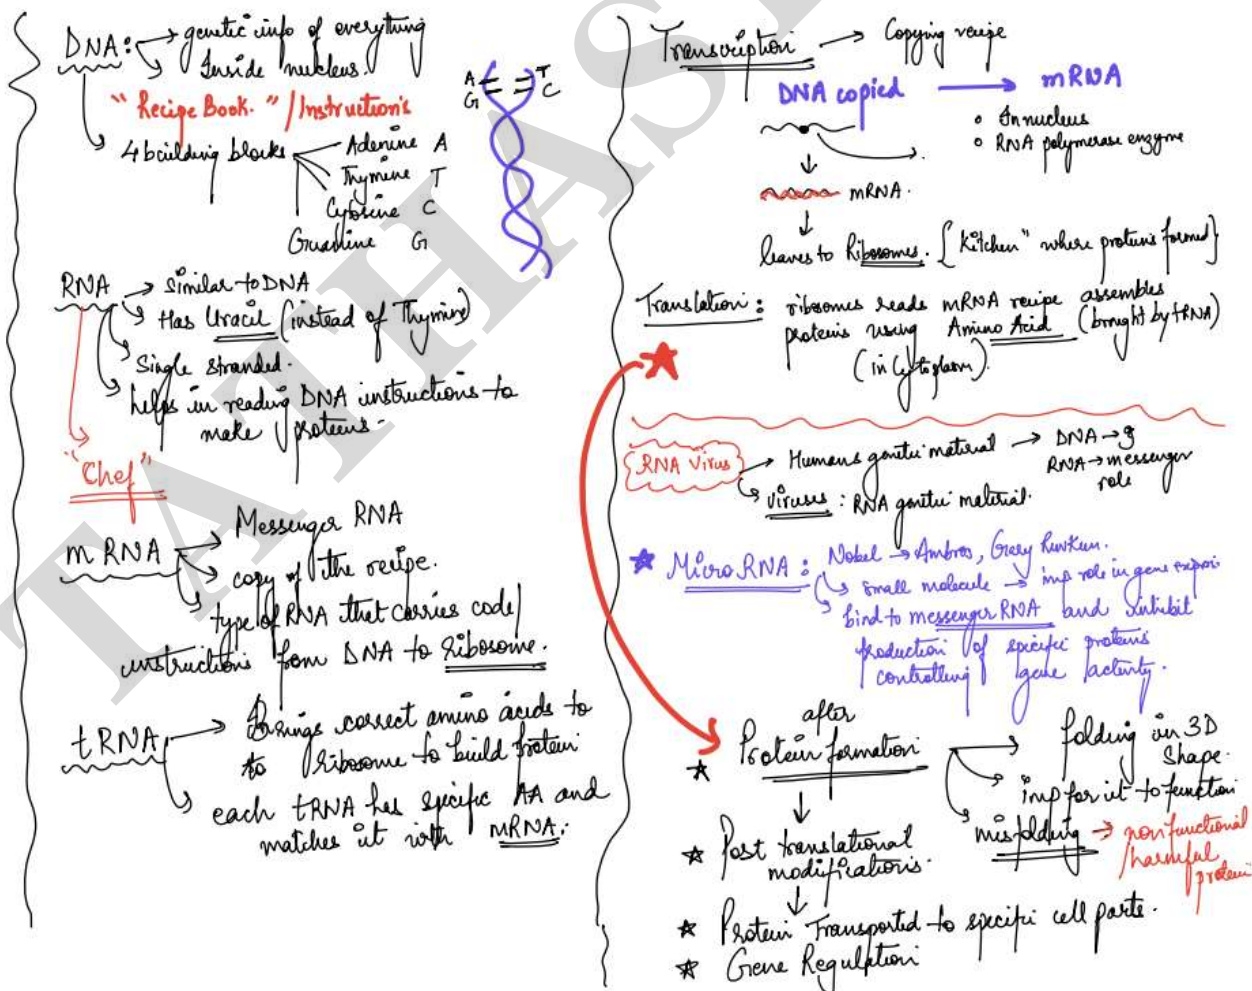 DNA: → genetic info of everything
Inside nucleus.
"Recipe Book." / Instructions
4 building blocks
Adenine A
Thymine T
Cytosine C
Guanine G
A T
G C
RNA → Similar to DNA
Has Uracil (instead of Thymine)
Single stranded.
helps in reading DNA instructions to
make proteins.
"Chef"
mRNA → Messenger RNA
copy of the recipe.
type of RNA that carries code/
instructions from DNA to Ribosome.
tRNA → Brings correct amino acids to
to ribosome to build protein
each tRNA has specific AA and
matches it with mRNA.
Transcription → Copying recipe
DNA copied → mRNA
In nucleus
RNA polymerase enzyme
mRNA.
leaves to Ribosomes. {"Kitchen" where proteins formed}
Translation: ribosomes reads mRNA recipe assembles
proteins using Amino Acid (brought by tRNA)
(in Cytoplasm).
RNA Virus → Humans genetic material → DNA →
RNA → messenger
role
Viruses : RNA genetic material.
Micro RNA: Nobel → Ambros, Gary Ruvkun.
small molecule → imp role in gene
bind to messenger RNA and inhibit
production of specific proteins
controlling gene activity.
after
Protein formation → folding in 3D
Shape.
imp for it to function
misfolding → non functional
/harmful
protein
Post translational
modifications.
Protein Transported to specific cell parts.
Gene Regulation
TATHAST